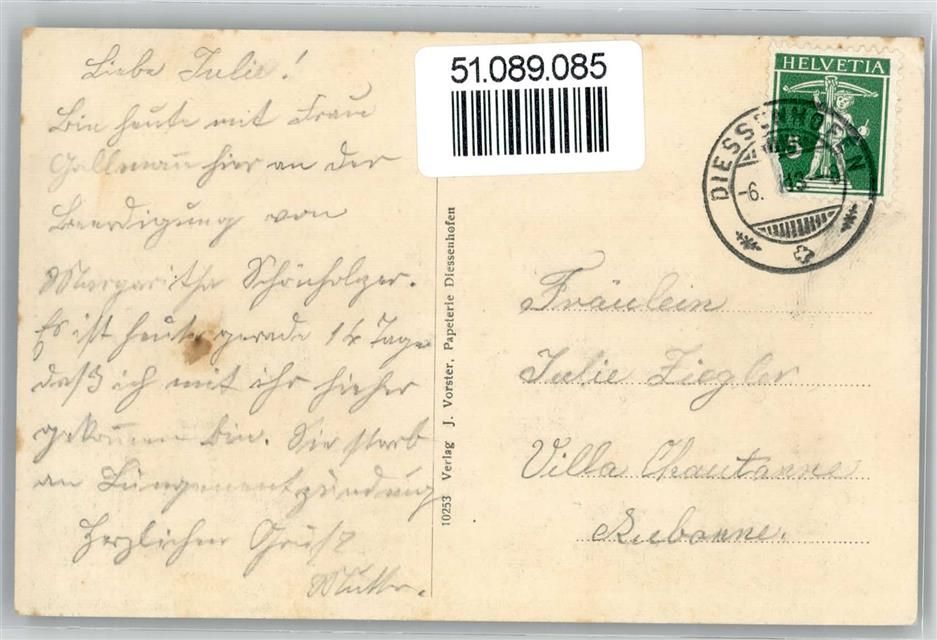 Liebe Julie!
Bin heute mit Frau
Gallmann hier an der
Beerdigung von
Margaritha Schönholzer.
Es ist heute gerade 14 Tage
daß ich mit ihr hieher
gekommen bin. Sie starb
an Lungenentzündung
Herzlichen Gruß
Mutter.
51.089.085
10253 Verlag J. Vorster, Papeterie Diessenhofen
HELVETIA
5
DIESSENHOFEN
-6.
Fräulein
Julie Ziegler
Villa Chautanne
Aubonne.